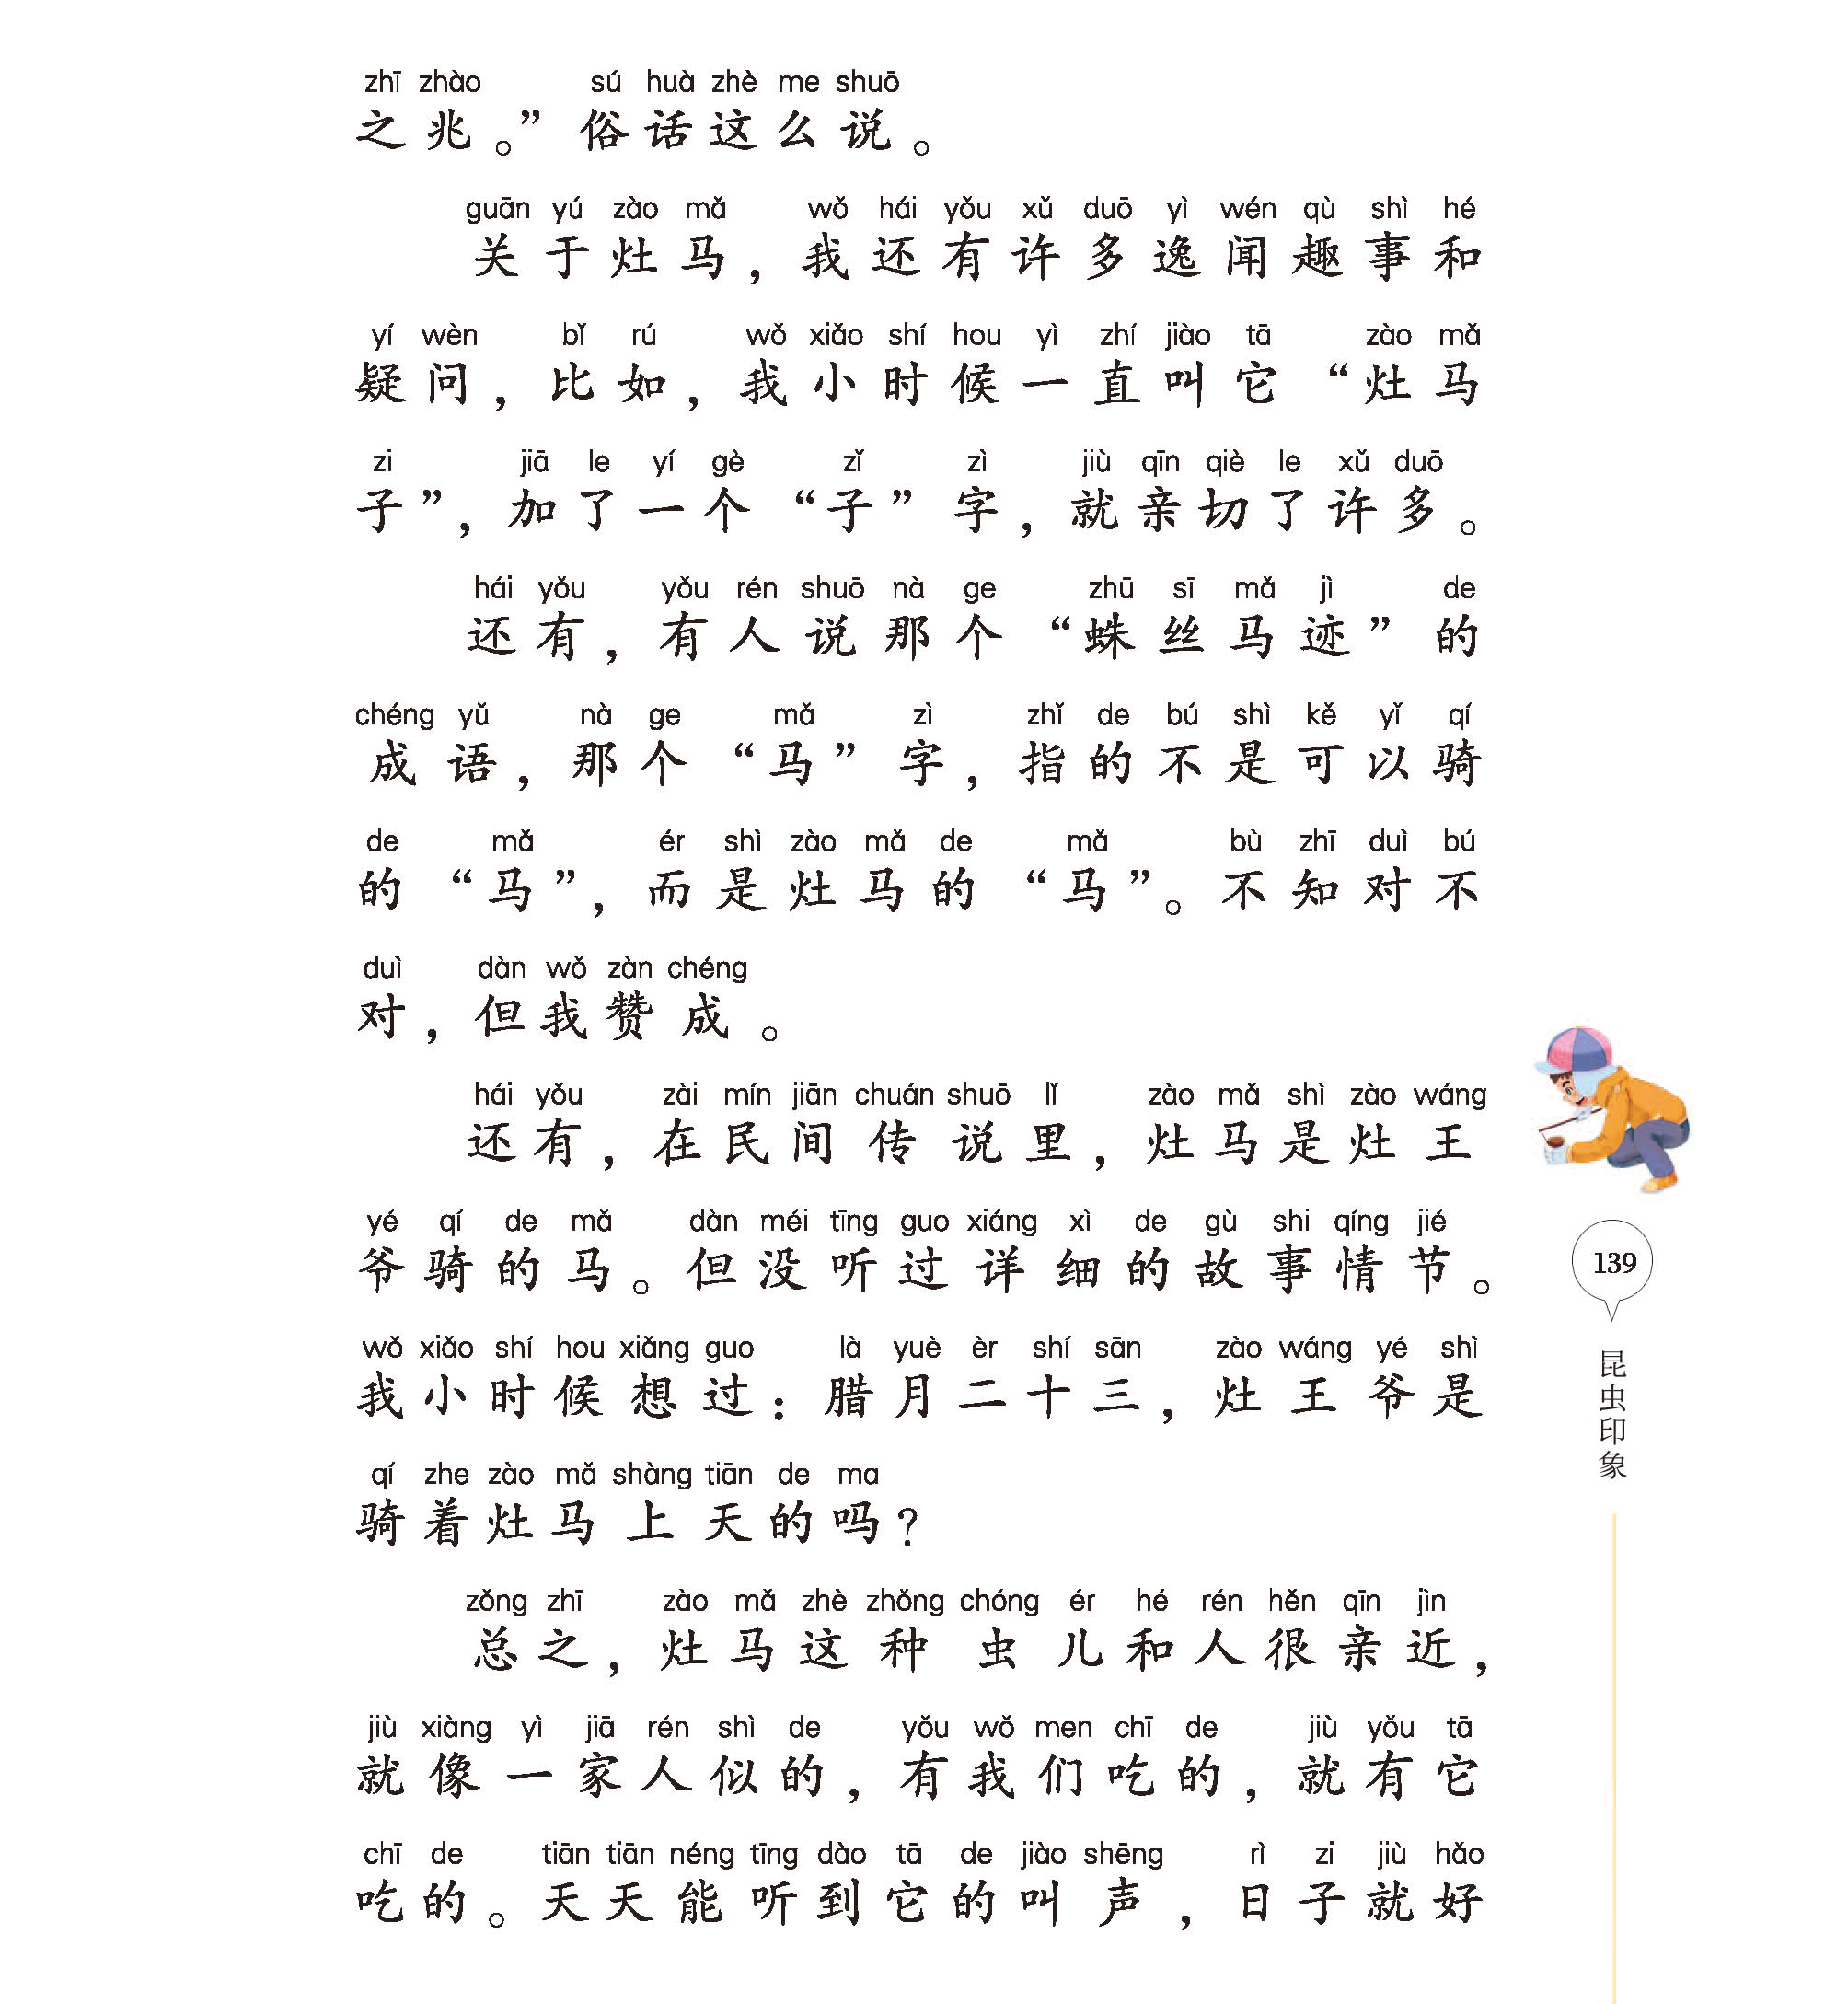 zhī zhào sú huà zhè me shuō
之兆。”俗话这么说。
guān yú zào mǎ wǒ hái yǒu xǔ duō yì wén qù shì hé
关于灶马，我还有许多逸闻趣事和
yí wèn bǐ rú wǒ xiǎo shí hou yì zhí jiào tā zào mǎ
疑问，比如，我小时候一直叫它“灶马
zi jiā le yí gè zǐ zì jiù qīn qiè le xǔ duō
子”，加了一个“子”字，就亲切了许多。
hái yǒu yǒu rén shuō nà ge zhū sī mǎ jì de
还有，有人说那个“蛛丝马迹”的
chéng yǔ nà ge mǎ zì zhǐ de bú shì kě yǐ qí
成语，那个“马”字，指的不是可以骑
de mǎ ér shì zào mǎ de mǎ bù zhī duì bú
的“马”，而是灶马的“马”。不知对不
duì dàn wǒ zàn chéng
对，但我赞成。
hái yǒu zài mín jiān chuán shuō lǐ zào mǎ shì zào wáng
还有，在民间传说里，灶马是灶王
yé qí de mǎ dàn méi tīng guo xiáng xì de gù shi qíng jié
爷骑的马。但没听过详细的故事情节。
wǒ xiǎo shí hou xiǎng guo là yuè èr shí sān zào wáng yé shì
我小时候想过：腊月二十三，灶王爷是
qí zhe zào mǎ shàng tiān de ma
骑着灶马上天的吗？
zǒng zhī zào mǎ zhè zhǒng chóng ér hé rén hěn qīn jìn
总之，灶马这种虫儿和人很亲近，
jiù xiàng yì jiā rén shì de yǒu wǒ men chī de jiù yǒu tā
就像一家人似的，有我们吃的，就有它
chī de tiān tiān néng tīng dào tā de jiào shēng rì zi jiù hǎo
吃的。天天能听到它的叫声，日子就好
139
昆虫印象